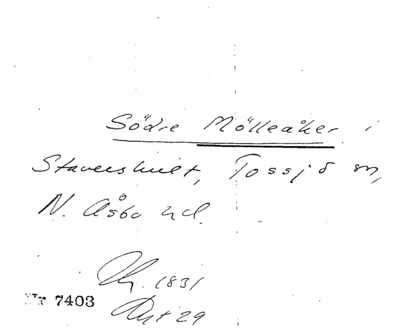 Södre Mölleåker i
Stavershult, Tossjö sn,
N. Åsbo hd.
1831
Nr 7403
Akt 29